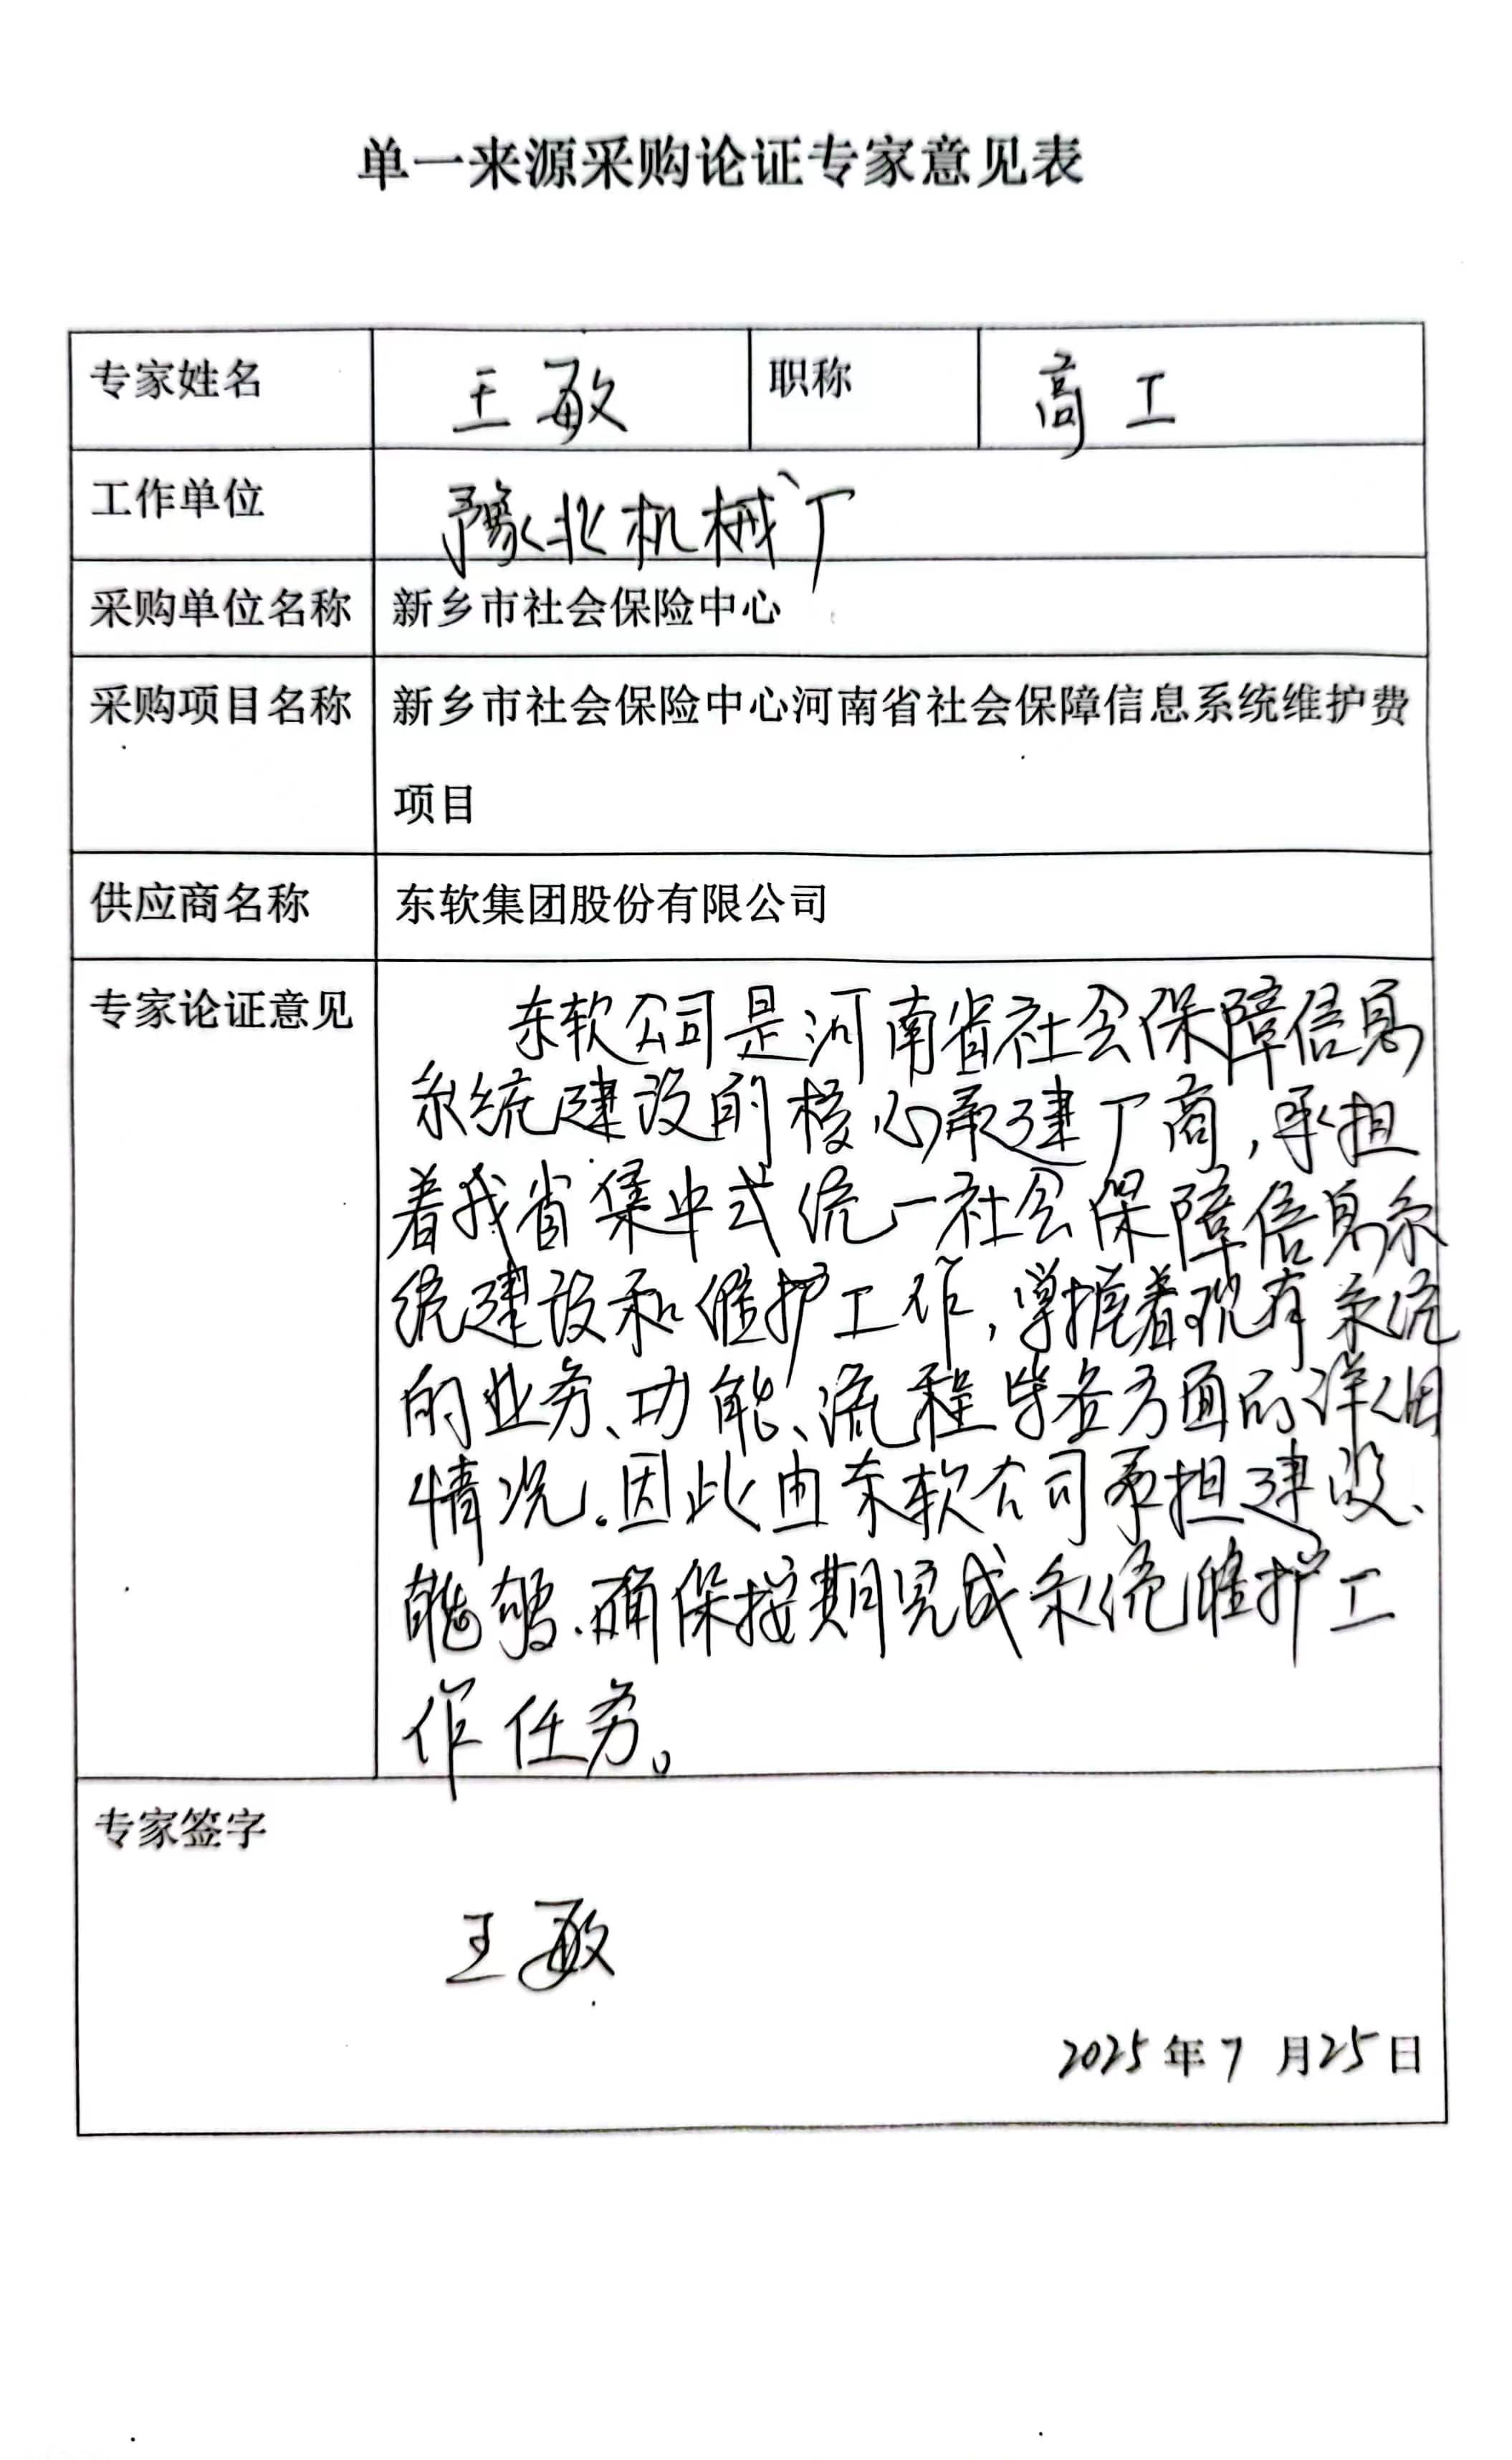 单一来源采购论证专家意见表
专家姓名 王敏 职称 高工
工作单位 豫北机械厂
采购单位名称 新乡市社会保险中心
采购项目名称 新乡市社会保险中心河南省社会保障信息系统维护费
项目
供应商名称 东软集团股份有限公司
专家论证意见 东软公司是河南省社会保障信息
系统建设的核心承建厂商,承担
着我省集中式统一社会保障信息系
统建设和维护工作,掌握着现有系统
的业务、功能、流程等各方面的详细
情况。因此由东软公司承担建设、
能够、确保按期完成系统维护工
作任务。
专家签字
王敏
2025年7月25日